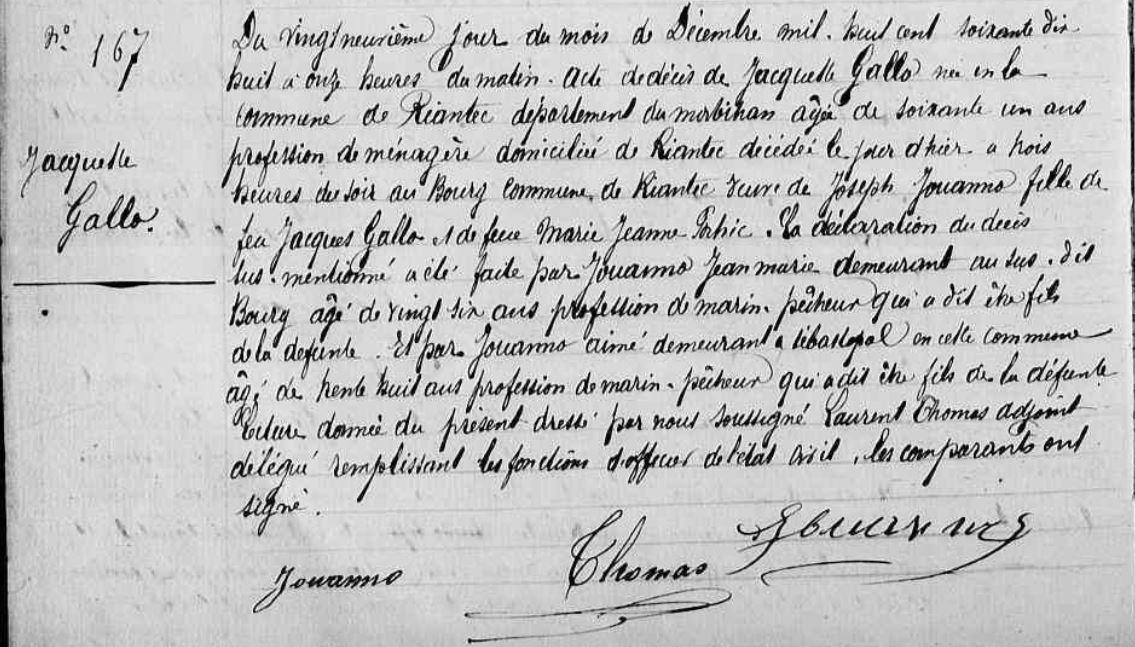 N° 167
Jacquette
Gallo.
Du vingt neuvième jour du mois de Décembre mil. huit cent soixante dix
huit à onze heures du matin. acte de décès de Jacquette Gallo née en la
commune de Riantec département du morbihan âgée de soixante un ans
profession de ménagère domiciliée de Riantec décédée le jour d'hier a trois
heures du soir au Bourg commune de Riantec veuve de Joseph Jouanno fille de
feu Jacques Gallo et de feue Marie Jeanne . La déclaration du décès
sus. mentionné a été faite par Jouanno Jean marie demeurant au sus. dit
Bourg âgé de vingt six ans profession de marin. pêcheur qui a dit être fils
de la defunte. Et par Jouanno aimé demeurant a sébastopol en cette commune
âgé de trente huit ans profession de marin. pêcheur qui a dit être fils de la défunte
Lecture donnée du présent dressé par nous soussigné Laurent Thomas adjoint
délégué remplissant les fonctions d'officier de l'état civil, les comparants ont
signé.
Jouanno Thomas